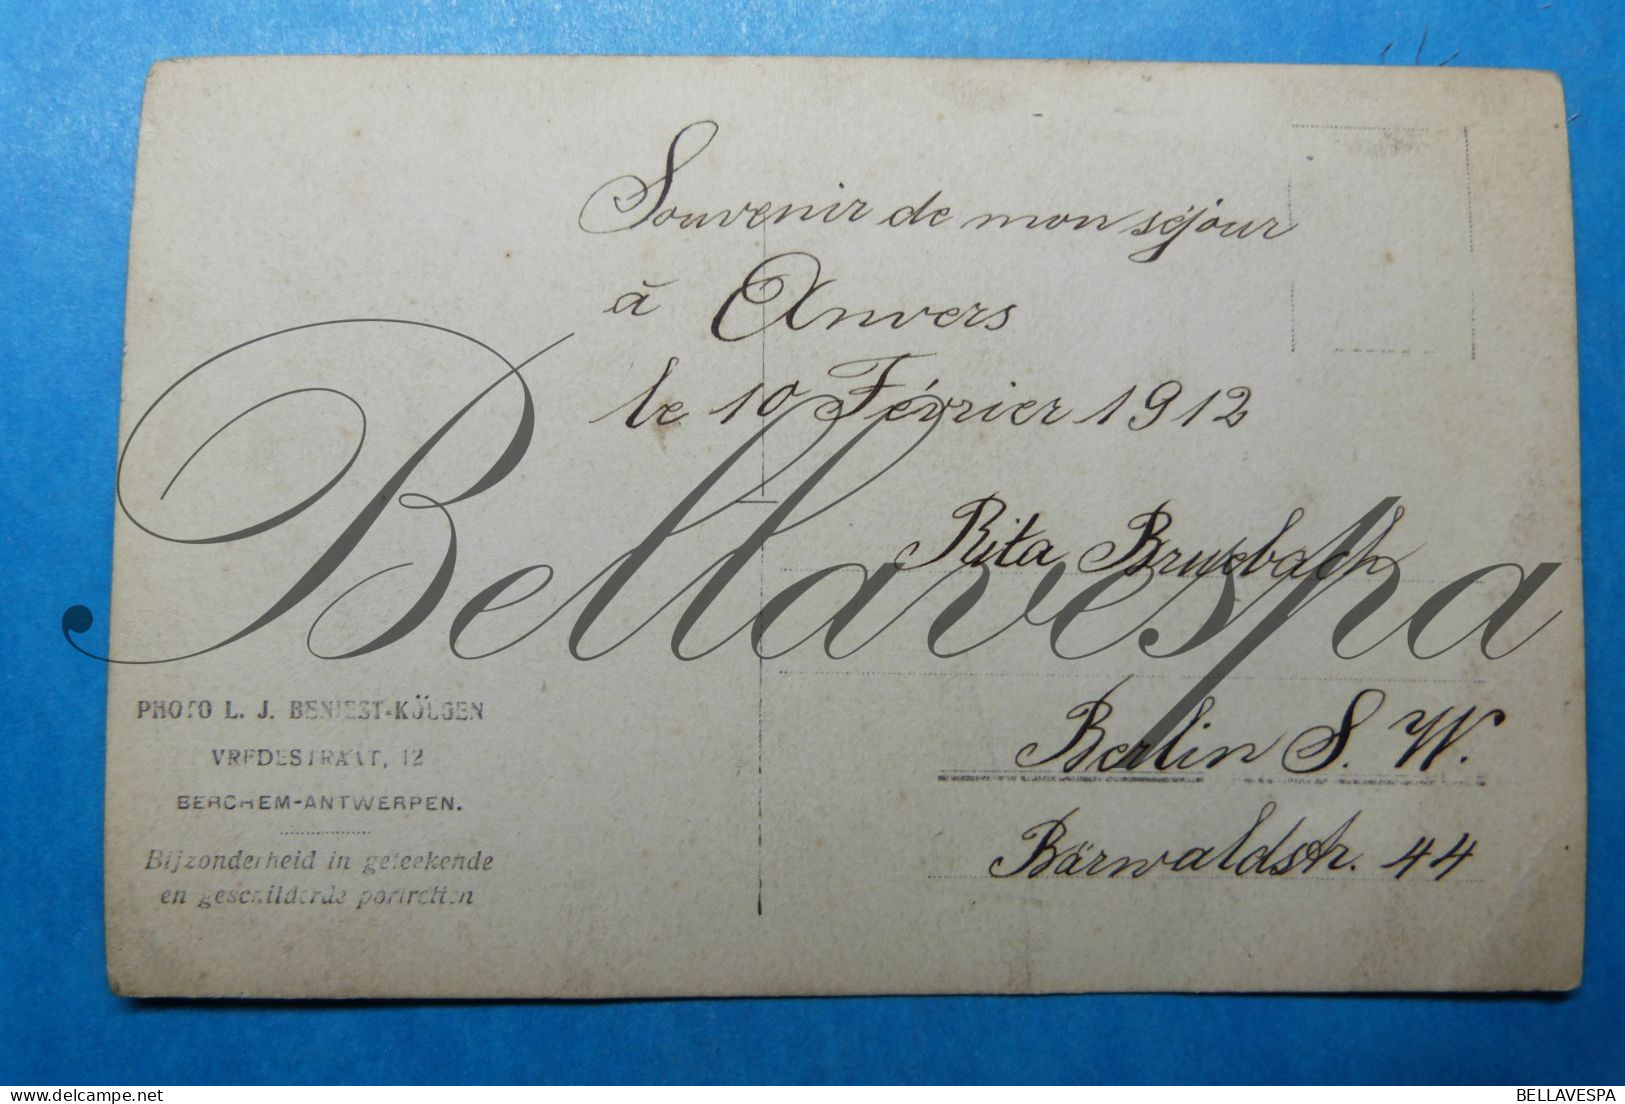 Souvenir de mon séjour
à Anvers
le 10 Février 1912
Rita
Berlin S. W.
Bärwaldstr. 44
PHOTO L. J. BENIEST-KÜLGEN
VREDESTRAAT, 12
BERCHEM-ANTWERPEN.
Bijzonderheid in geteekende
en geschilderde portretten
Bellavespa
BELLAVESPA